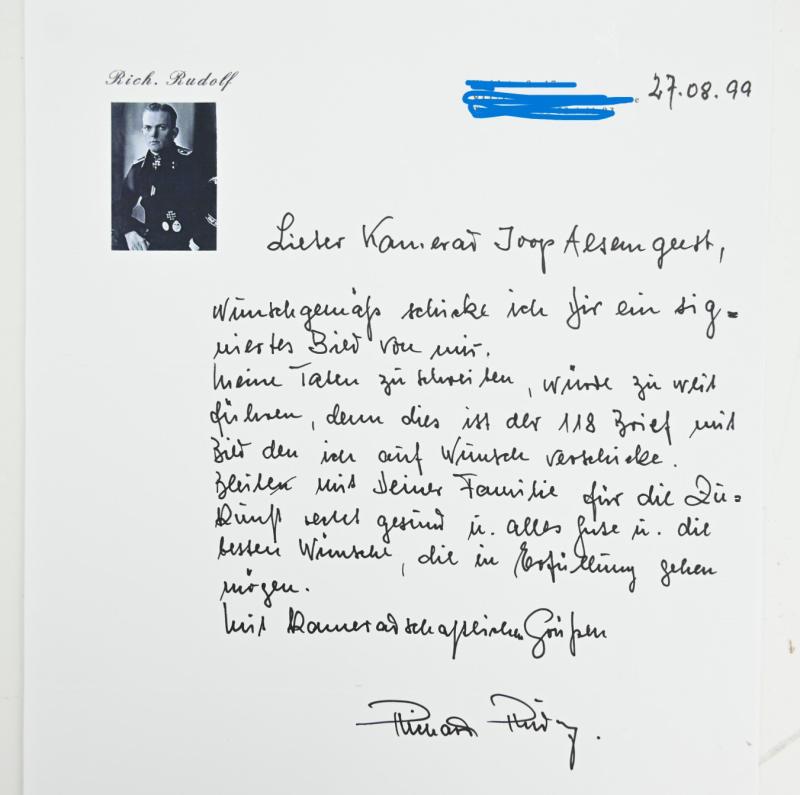 Rich. Rudolf
27.08.99
Lieber Kamerad Joop Alsemgeest,
wunschgemäß schicke ich Dir ein sig=
niertes Bild von mir.
Meine Taten zu schreiben, würde zu weit
führen, denn dies ist der 118 Brief mit
Bild den ich auf Wunsch verschicke.
Bleibe mit Deiner Familie für die Zu=
kunft recht gesund u. alles Gute u. die
besten Wünsche, die in Erfüllung gehen
mögen.
Mit Kameradschaftlichen Grüßen
Richard Rudolf.